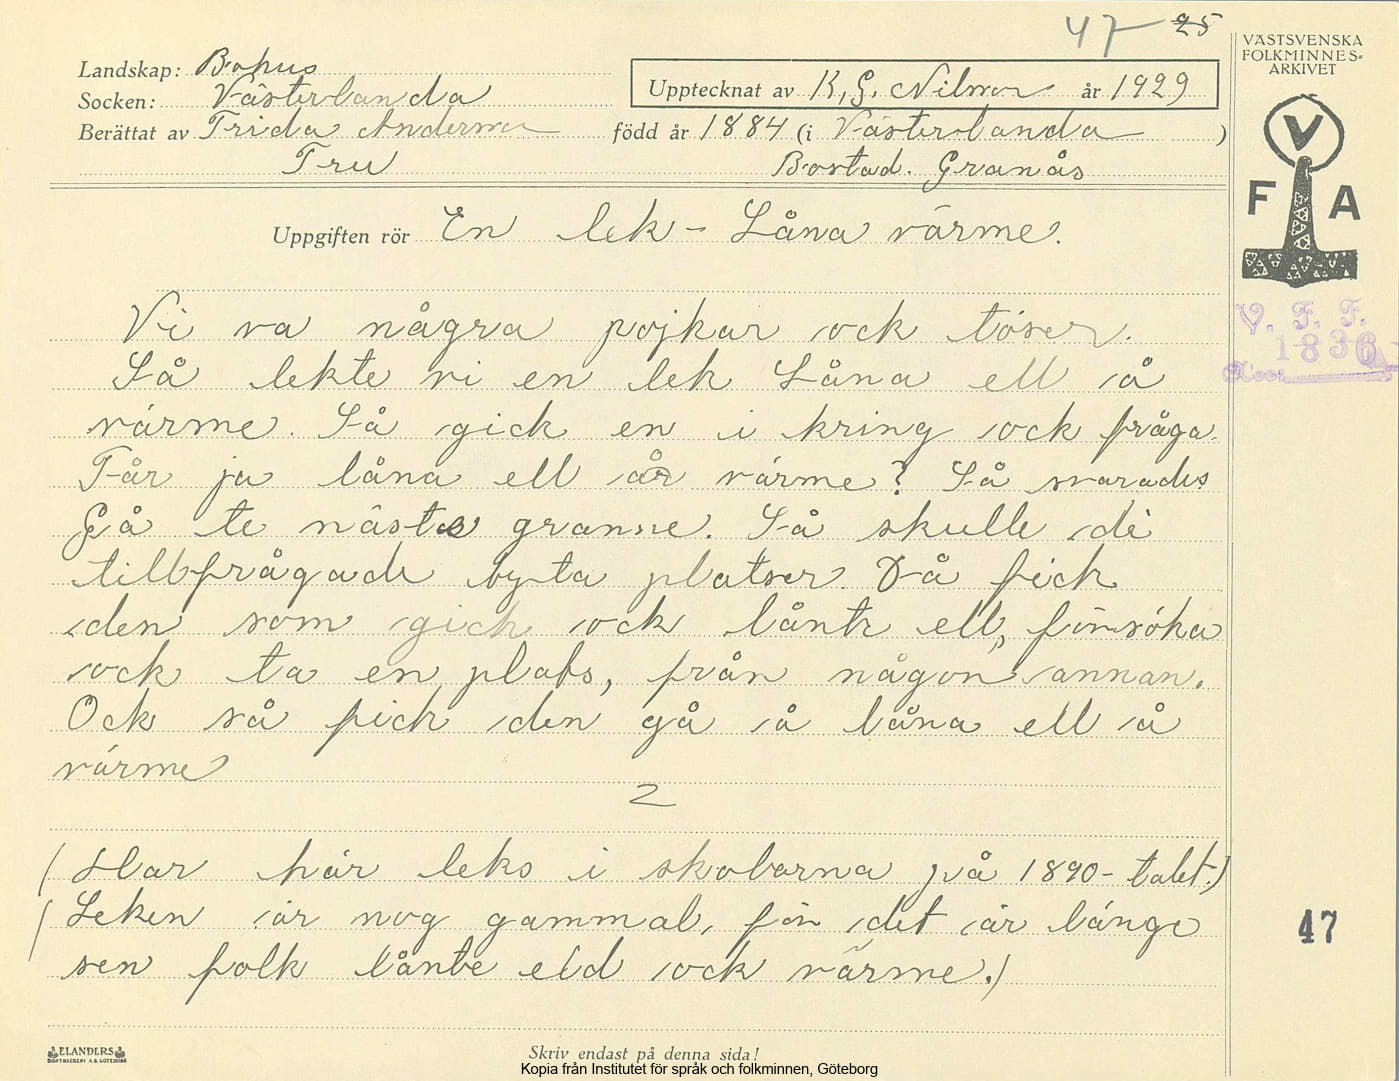 47 25
Landskap: Bohus
Socken: Västerlanda
Upptecknat av K, G. Nilson år 1929
Berättat av Frida Anderson född år 1884 (i Västerlanda )
Fru Bostad. Granås
Uppgiften rör En lek - Låna värme.
Vi va några pojkar ock töser.
Så lekte vi en lek Låna ell å
värme. Så gick en i kring ock fråga.
Får ja låna ell år värme? Så svarades
Gå te nästa granne. Så skulle dè
tillfrågade byta platser. Då fick
den som gick ock lånte ell, försöka
ock ta en plats, från någon annan.
Ock så fick den gå å låna ell å
värme
2
(Har här leks i skolorna på 1890-talet.)
(Leken är nog gammal, för det är länge
sen folk lånte eld ock värme.)
VÄSTSVENSKA
FOLKMINNES-
ARKIVET
V
F A
V. F. F.
1836
Acc.
47
ELANDERS
BOKTRYCKERI A.B. GÖTEBORG
Skriv endast på denna sida!
Kopia från Institutet för språk och folkminnen, Göteborg